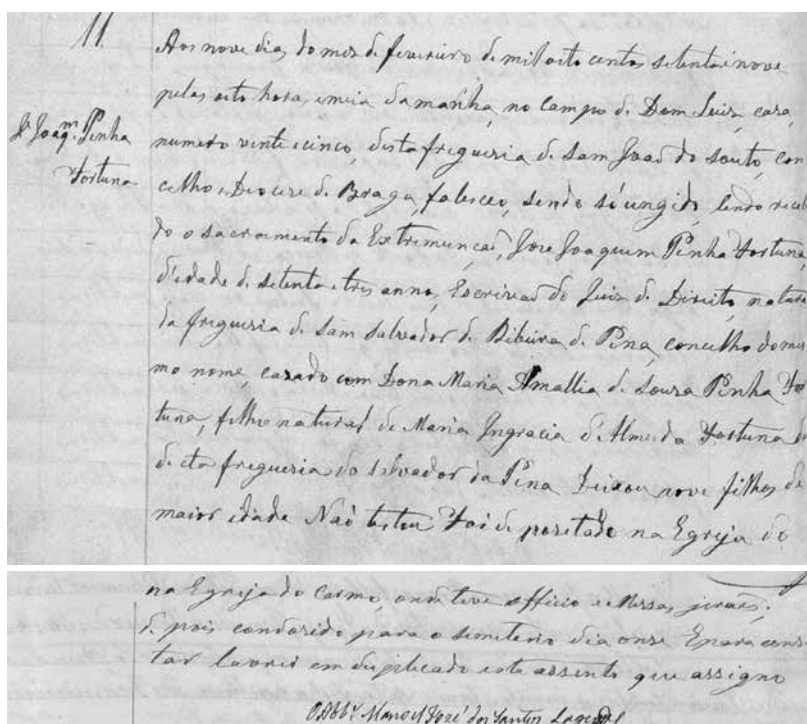 11
Aos nove dias do mez de fevereiro de mil oito centos setenta e nove
pelas oito horas e meia da manhã, no campo de Dom Luiz, caza
Je. Joaqm. Penha
numero vinte e cinco, desta freguesia de Sam Joaõ do Souto, con
Fortuna
celho e Diocese de Braga, faleceo, sendo só ungido, tendo recebi
do o sacramento da Extremunçaõ, Joze Joaquim Penha Fortuna
d'idade de setenta e tres annos, Escrivaõ do Juiz de Direito, natural
da freguesia de Sam Salvador de Ribeira de Pena, concelho do mes
mo nome, cazado com Dona Maria Amallia de Souza Penha For
tuna, filho natural de Maria Ingracia d'Almeida Fortuna da
dicta freguesia do Salvador da Pena Deixou nove filhos de
maior idade Naõ testou Foi depozitado na Egreja do
na Egreja do Carmo, onde teve officio e Missas geraes;
depois conduzido para o semiterio dia onze E para cons
tar lavrei em duplicado este assento que assigno
O Abbe. Manoel José dos Santos